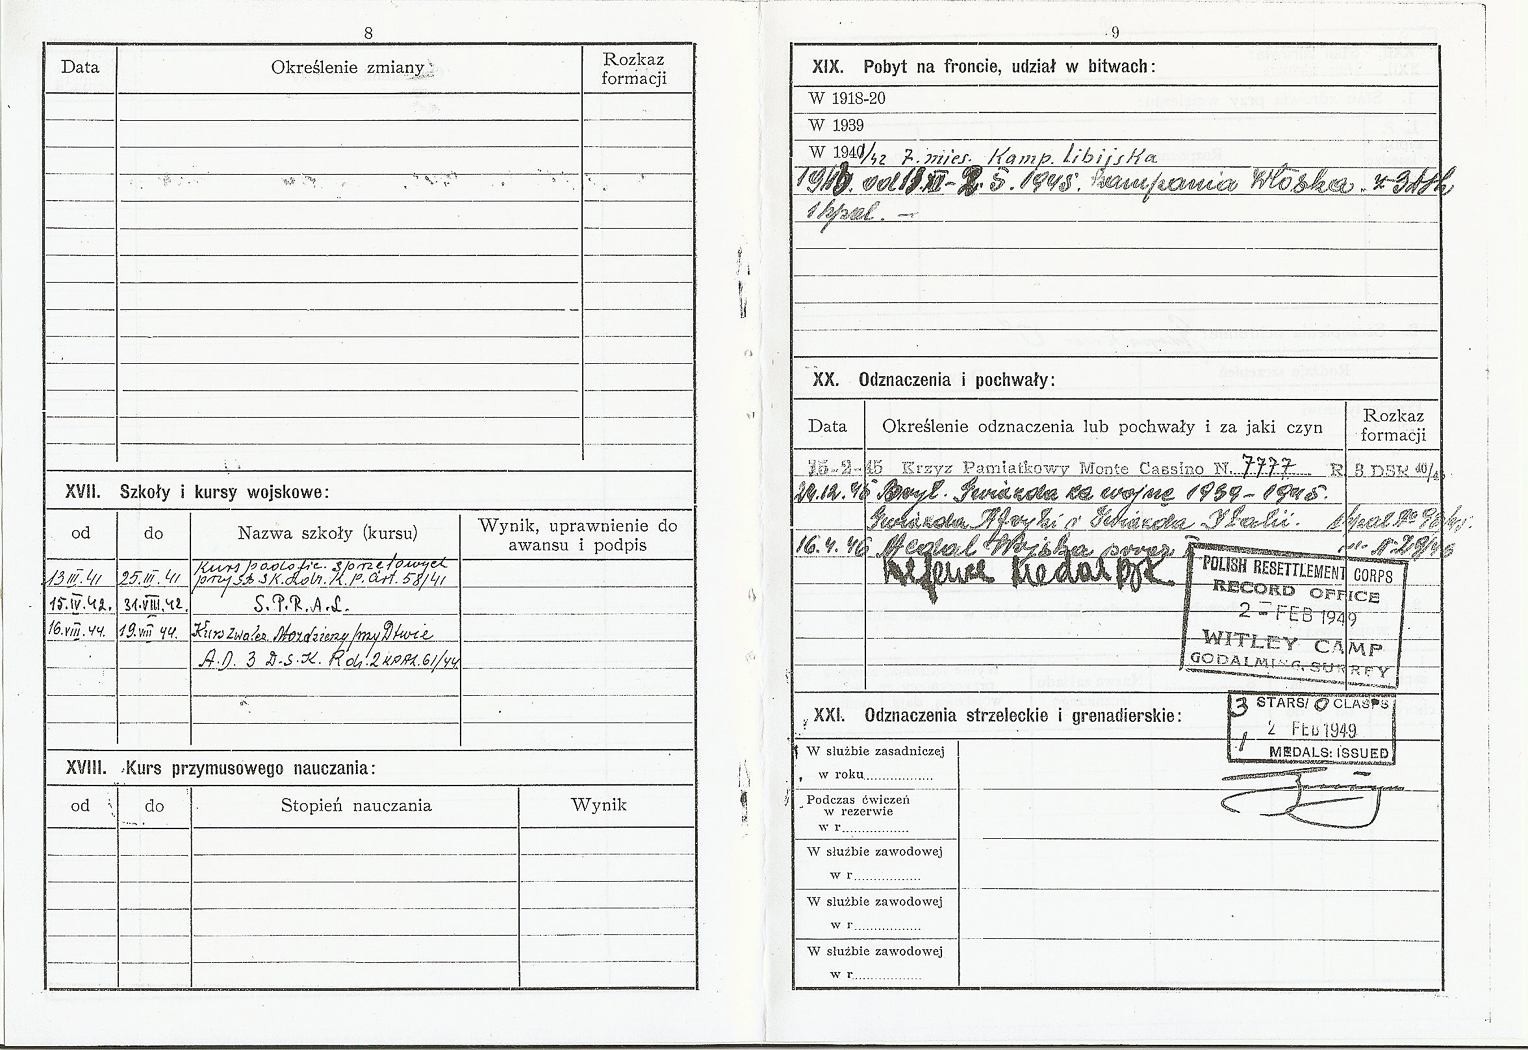 8
Data Określenie zmiany Rozkaz formacji
XVII. Szkoły i kursy wojskowe:
od do Nazwa szkoły (kursu) Wynik, uprawnienie do awansu i podpis
13 III. 41 25. III. 41 Kurs podofic. sprzętowych
przy 58/41
15. IV. 42. 31. VIII. 42. S.P.R.A.L.
16. VIII. 44. 19. VIII 44. Kurs zwalcz. Moździerzy przy D-twie
A.D. 3 D.S.K. 61/44
XVIII. Kurs przymusowego nauczania:
od do Stopień nauczania Wynik
9
XIX. Pobyt na froncie, udział w bitwach:
W 1918-20
W 1939
W 1940/42 7. mies. Kamp. Libijska
od XII - 2. 5. 1945. kampania Włoska. z 3 dsk
1 kpal. —
XX. Odznaczenia i pochwały:
Data Określenie odznaczenia lub pochwały i za jaki czyn Rozkaz formacji
Krzyz Pamiatkowy Monte Cassino N. 7777 R 3 DSK 40/45
Bryt. Gwiazda za wojnę 1939-1945.
Gwiazda Afryki i Gwiazda Italii.
16. 4. 46 Medal Wojska
Defence Medal
POLISH RESETTLEMENT CORPS
RECORD OFFICE
2 - FEB 1949
WITLEY CAMP
GODALMING, SURREY
XXI. Odznaczenia strzeleckie i grenadierskie:
3 STARS/ 0 CLASPS
2 FEB 1949
1 MEDALS: ISSUED
W służbie zasadniczej
w roku................
Podczas ćwiczeń
w rezerwie
w r................
W służbie zawodowej
w r................
W służbie zawodowej
w r................
W służbie zawodowej
w r................